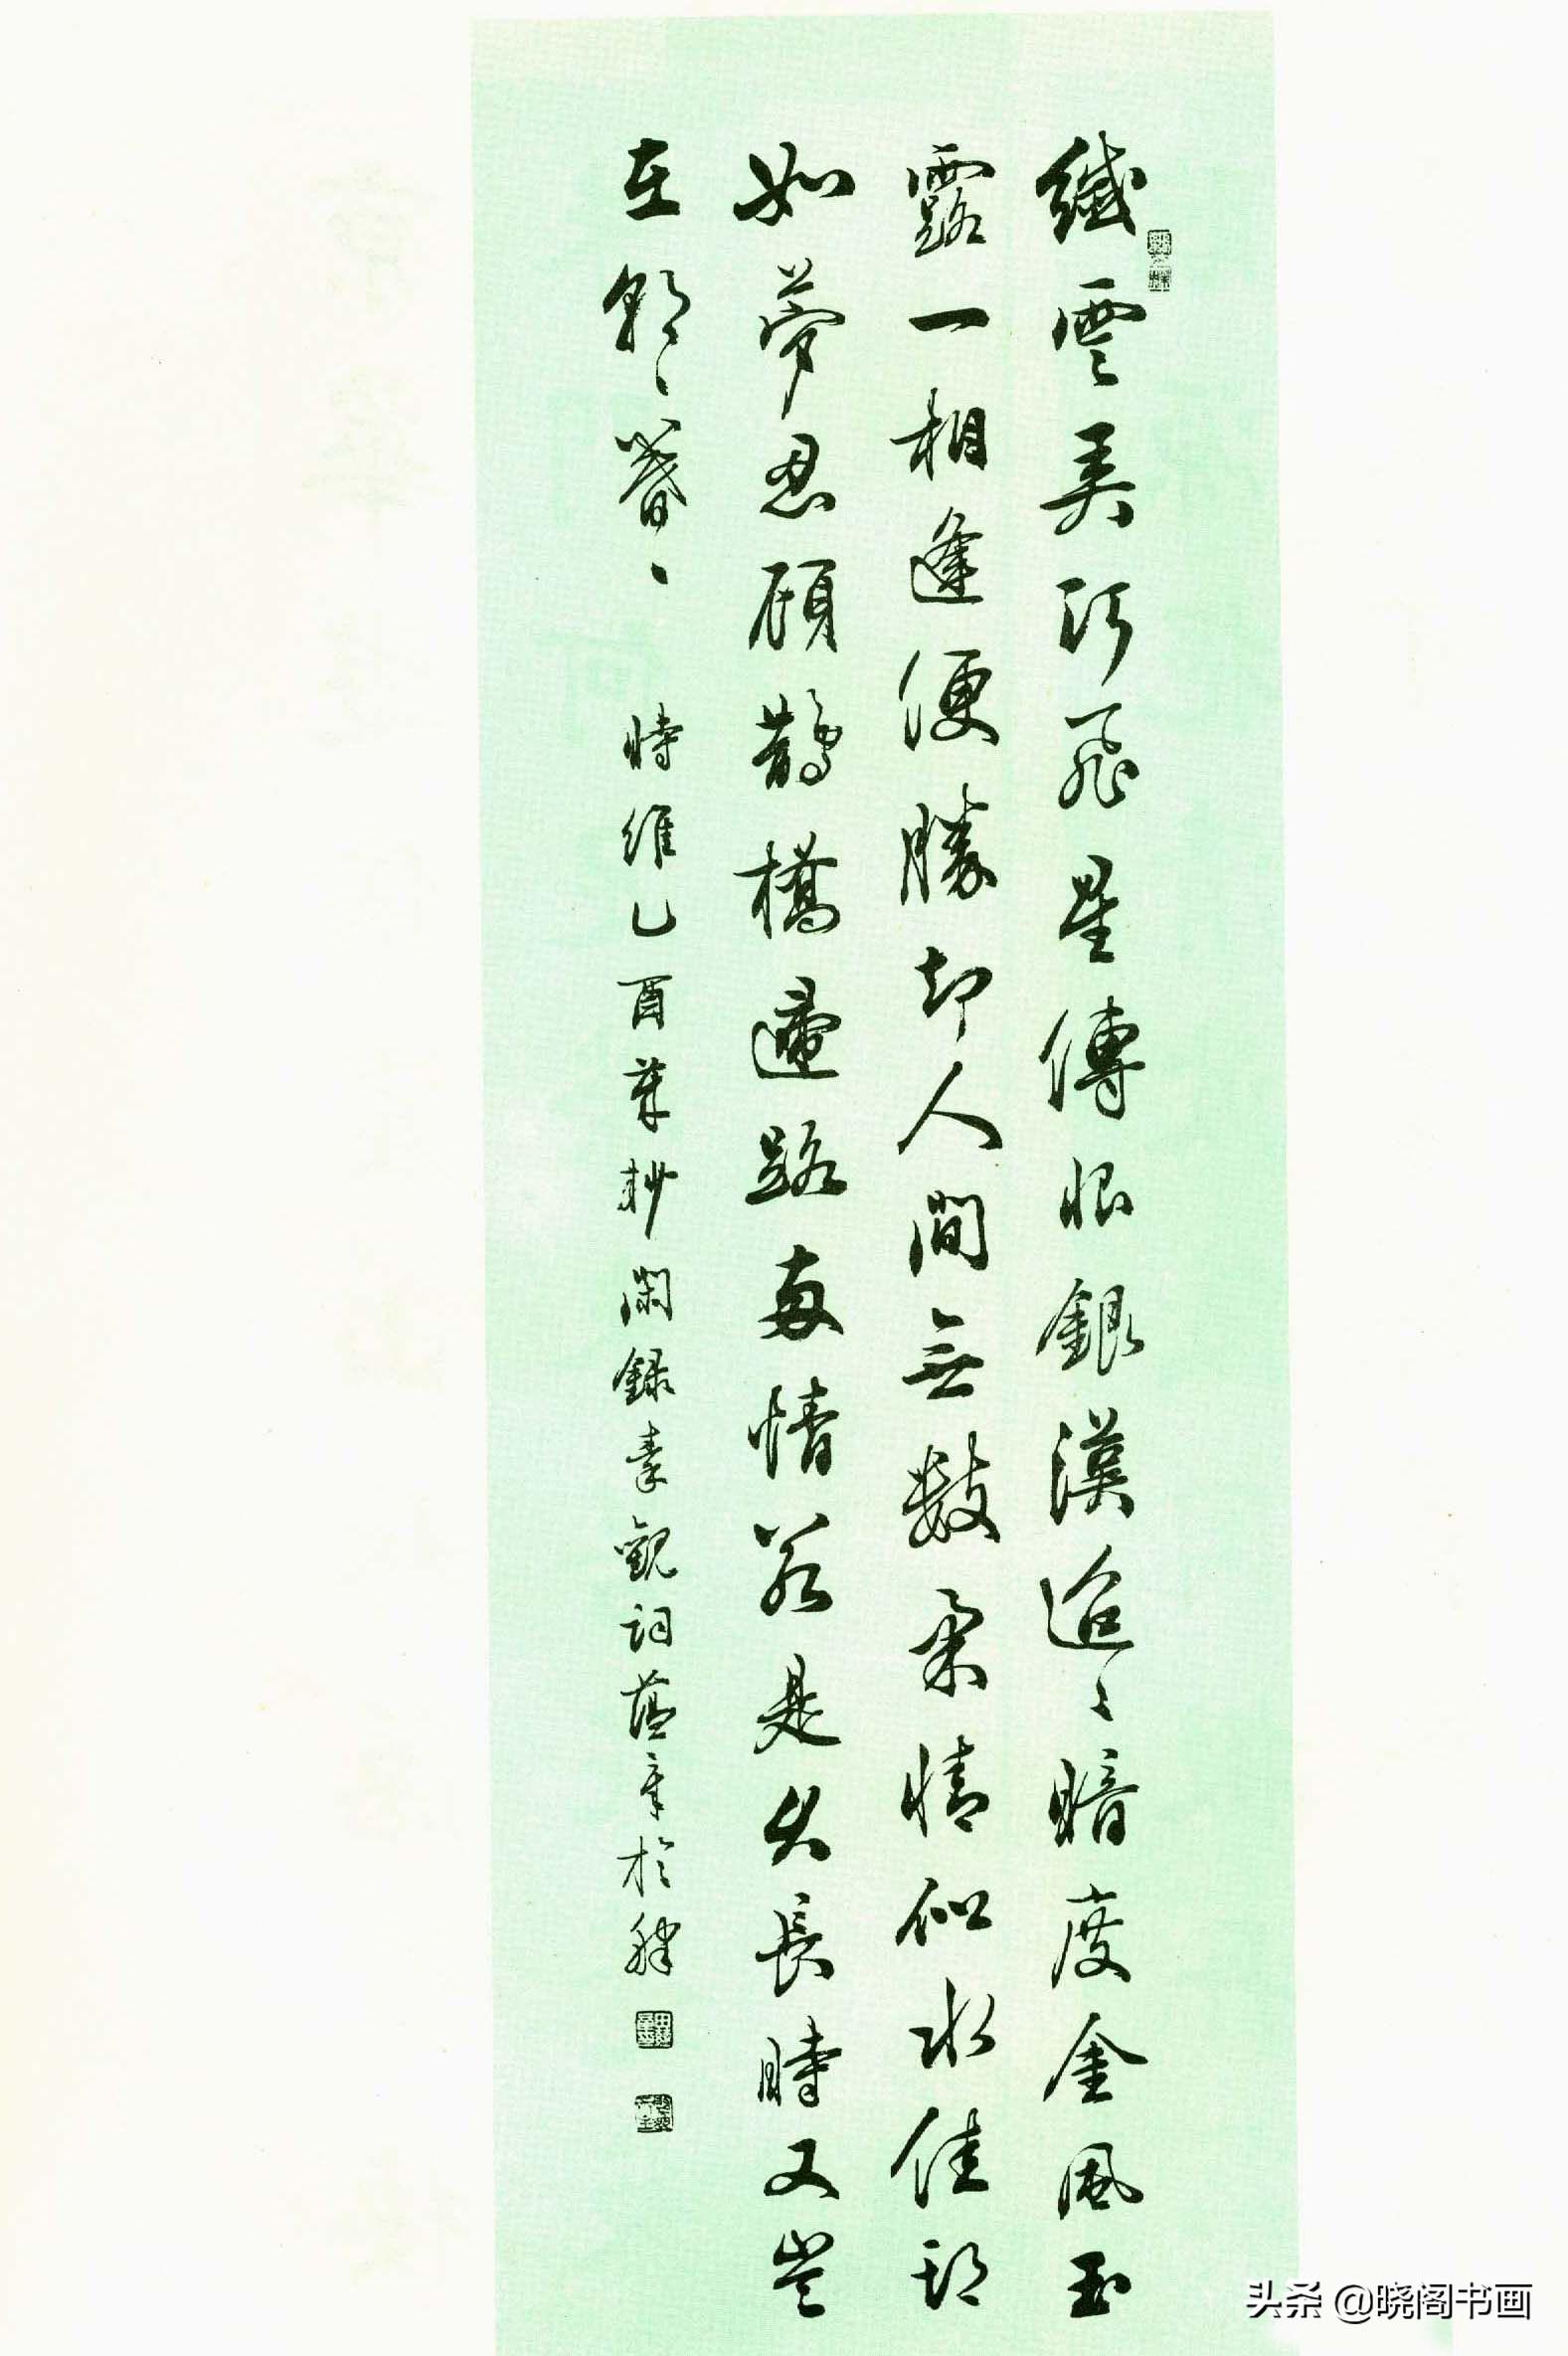 纖雲弄巧飛星傳恨銀漢迢〻暗度金風玉
露一相逢便勝却人間無數柔情似水佳期
如夢忍顧鵲橋歸路兩情若是久長時又豈
在朝〻暮〻
時維乙酉杪閑錄秦觀詞於
头条 @晓阁书画